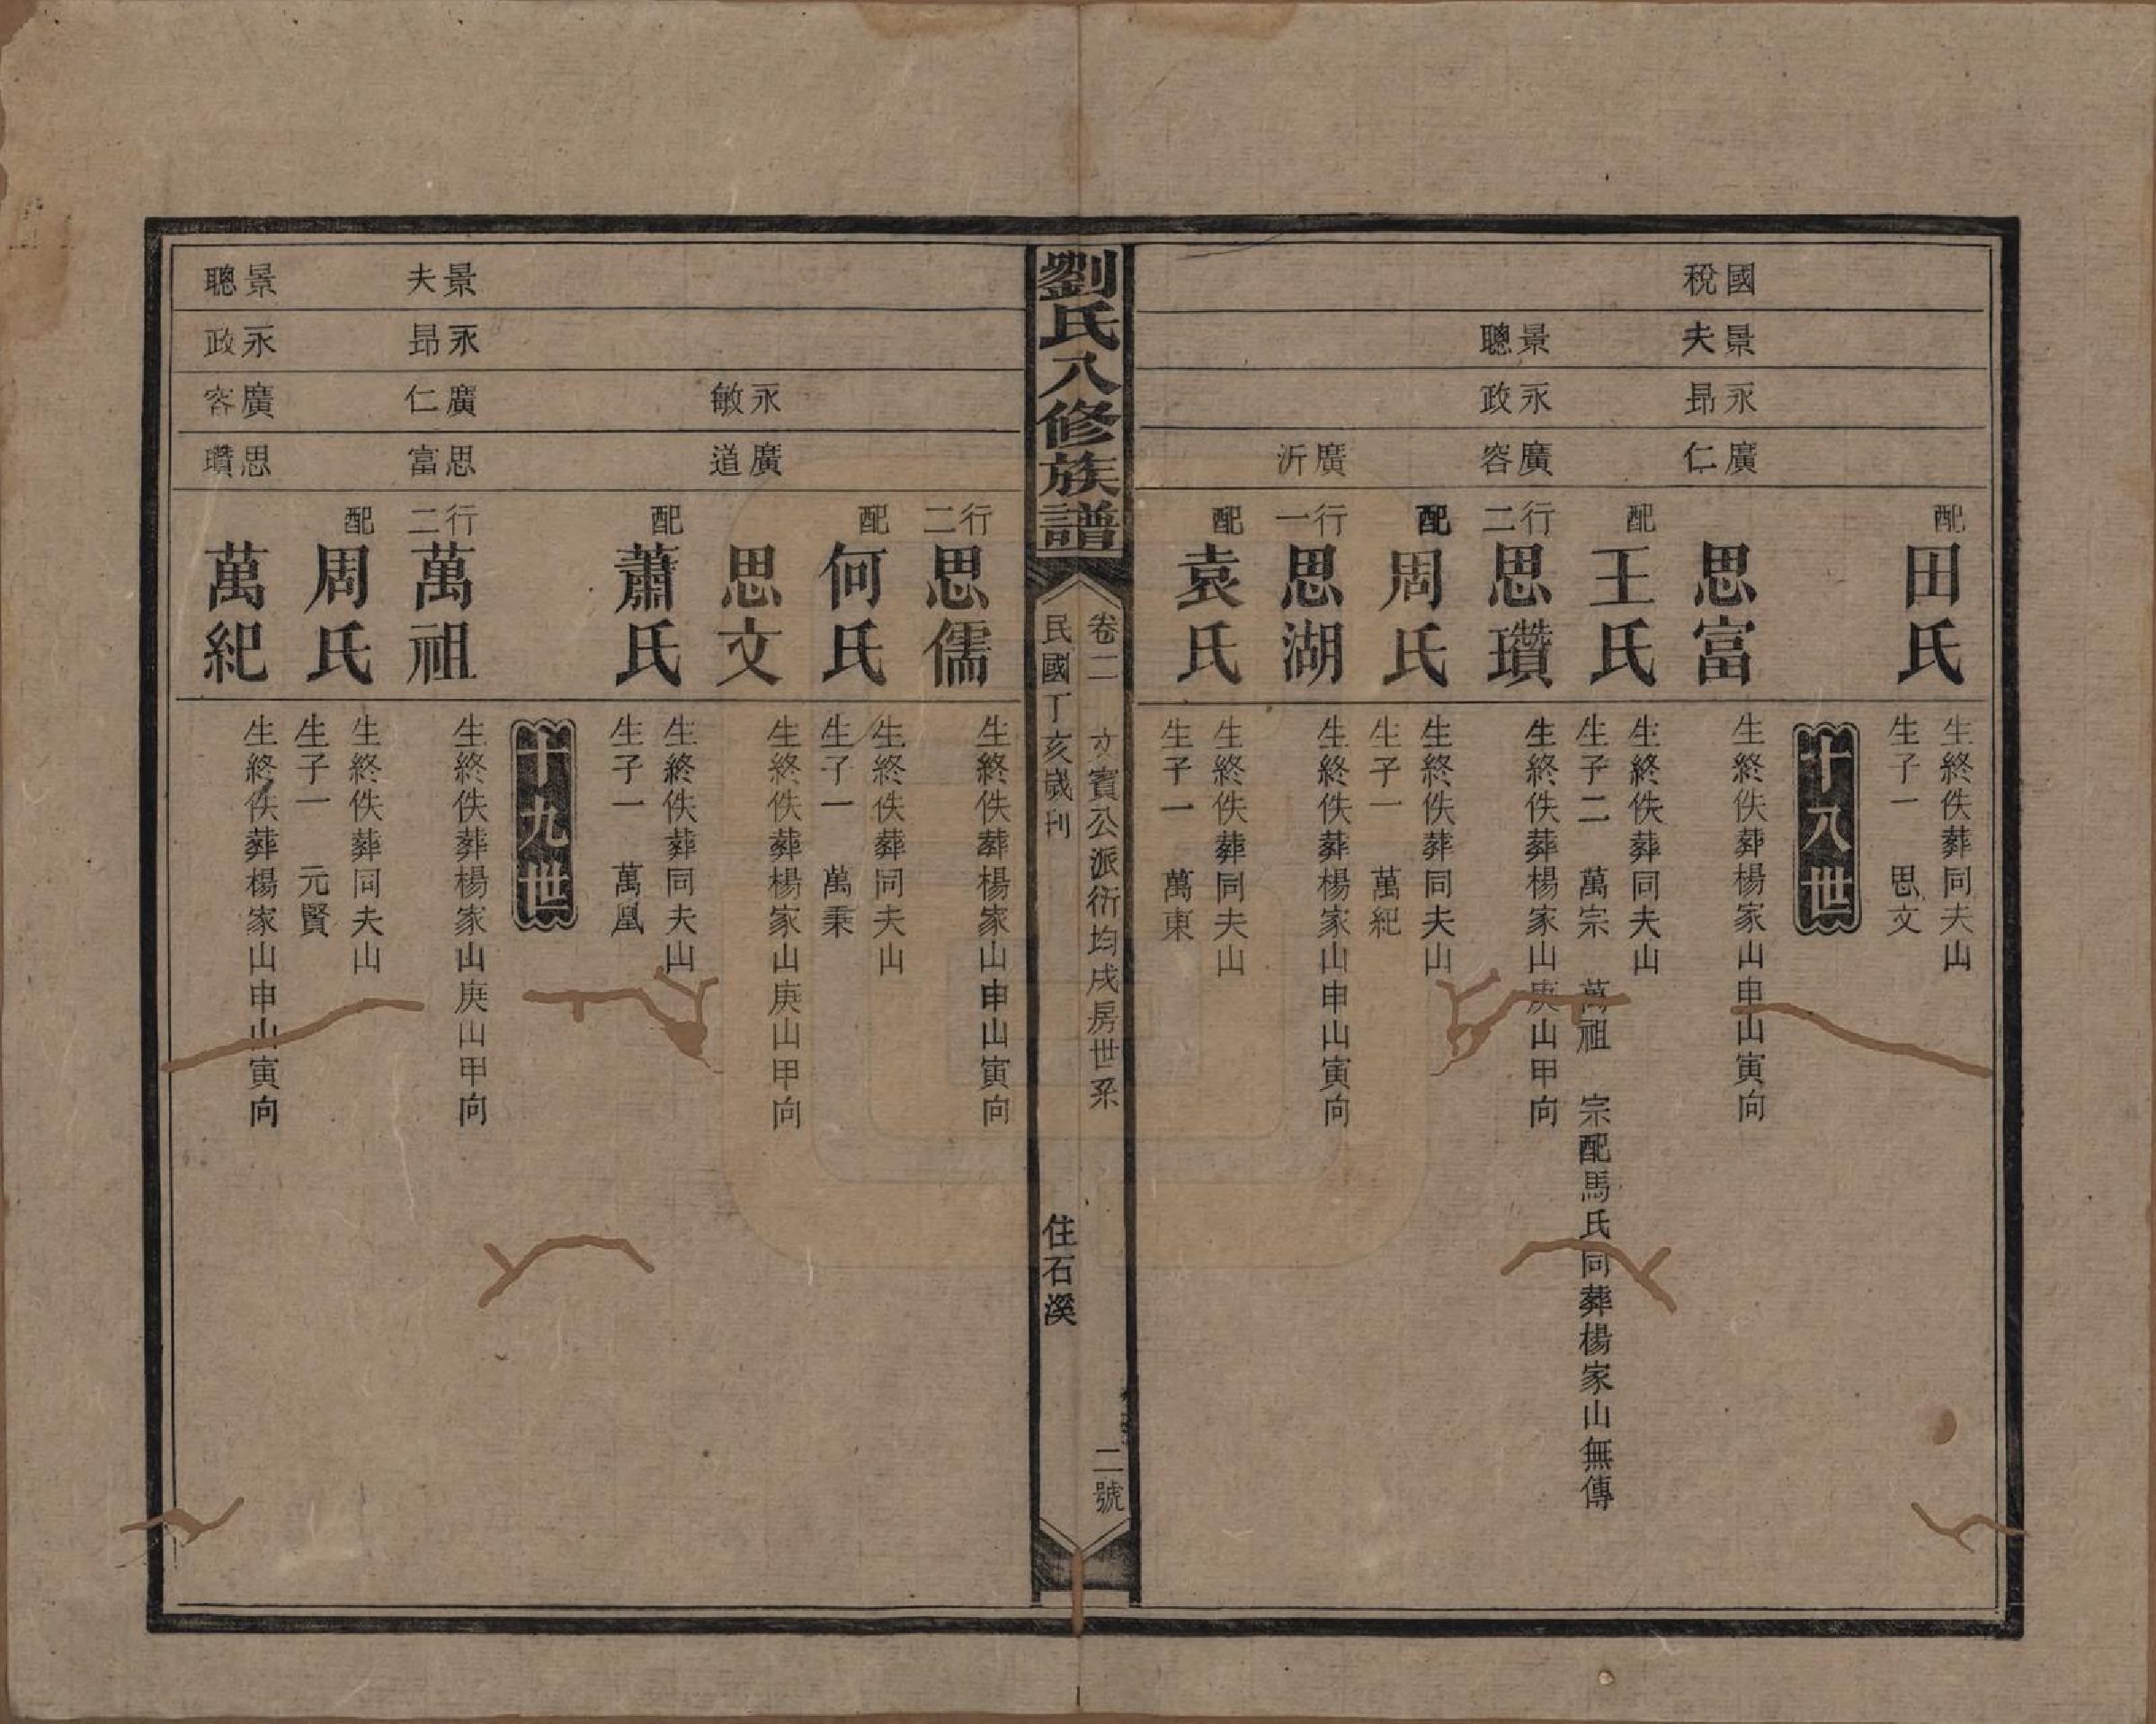 配
田氏
生終佚葬同夫山
生子一　思文
十八世
國稅
景夫
永昂
廣仁
思富
生終佚葬楊家山申山寅向
配
王氏
生終佚葬同夫山
生子二　萬宗　萬祖　宗配馬氏同葬楊家山無傳
景聰
永政
廣容
行二
思瓚
生終佚葬楊家山庚山甲向
配
周氏
生終佚葬同夫山
生子一　萬紀
廣沂
行一
思湖
生終佚葬楊家山申山寅向
配
袁氏
生終佚葬同夫山
生子一　萬東
劉氏八修族譜
卷二　才賓公派衍均成房世系　二號
民國丁亥歲刊　住石溪
行二
思儒
生終佚葬楊家山申山寅向
配
何氏
生終佚葬同夫山
生子一　萬秉
永敏
廣道
思文
生終佚葬楊家山庚山甲向
配
蕭氏
生終佚葬同夫山
生子一　萬凰
十九世
景夫
永昂
廣仁
思富
行二
萬祖
生終佚葬楊家山庚山甲向
配
周氏
生終佚葬同夫山
生子一　元賢
景聰
永政
廣容
思瓚
萬紀
生終佚葬楊家山申山寅向